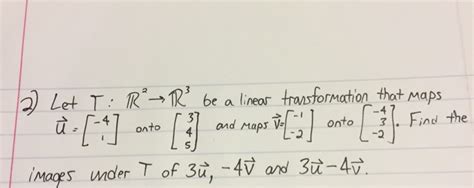 2) Let T: ℝ² → ℝ³ be a linear transformation that maps
u⃗ = [-4 1] onto [3 4 5] and maps v⃗ = [-1 -2] onto [-4 3 -2]. Find the
images under T of 3u⃗, -4v⃗ and 3u⃗-4v⃗.